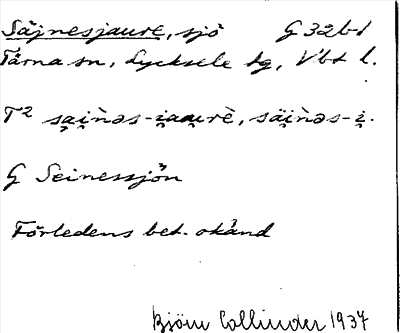 Säjnesjaure, sjö G 32bd
Tärna sn, Lycksele lg, Vbt l.
T² sa̮i̯nəs-i̯au̯rē, säi̯nəs-i̯.
G Seinessjön
Förledens bet. okänd
Björn Collinder 1937